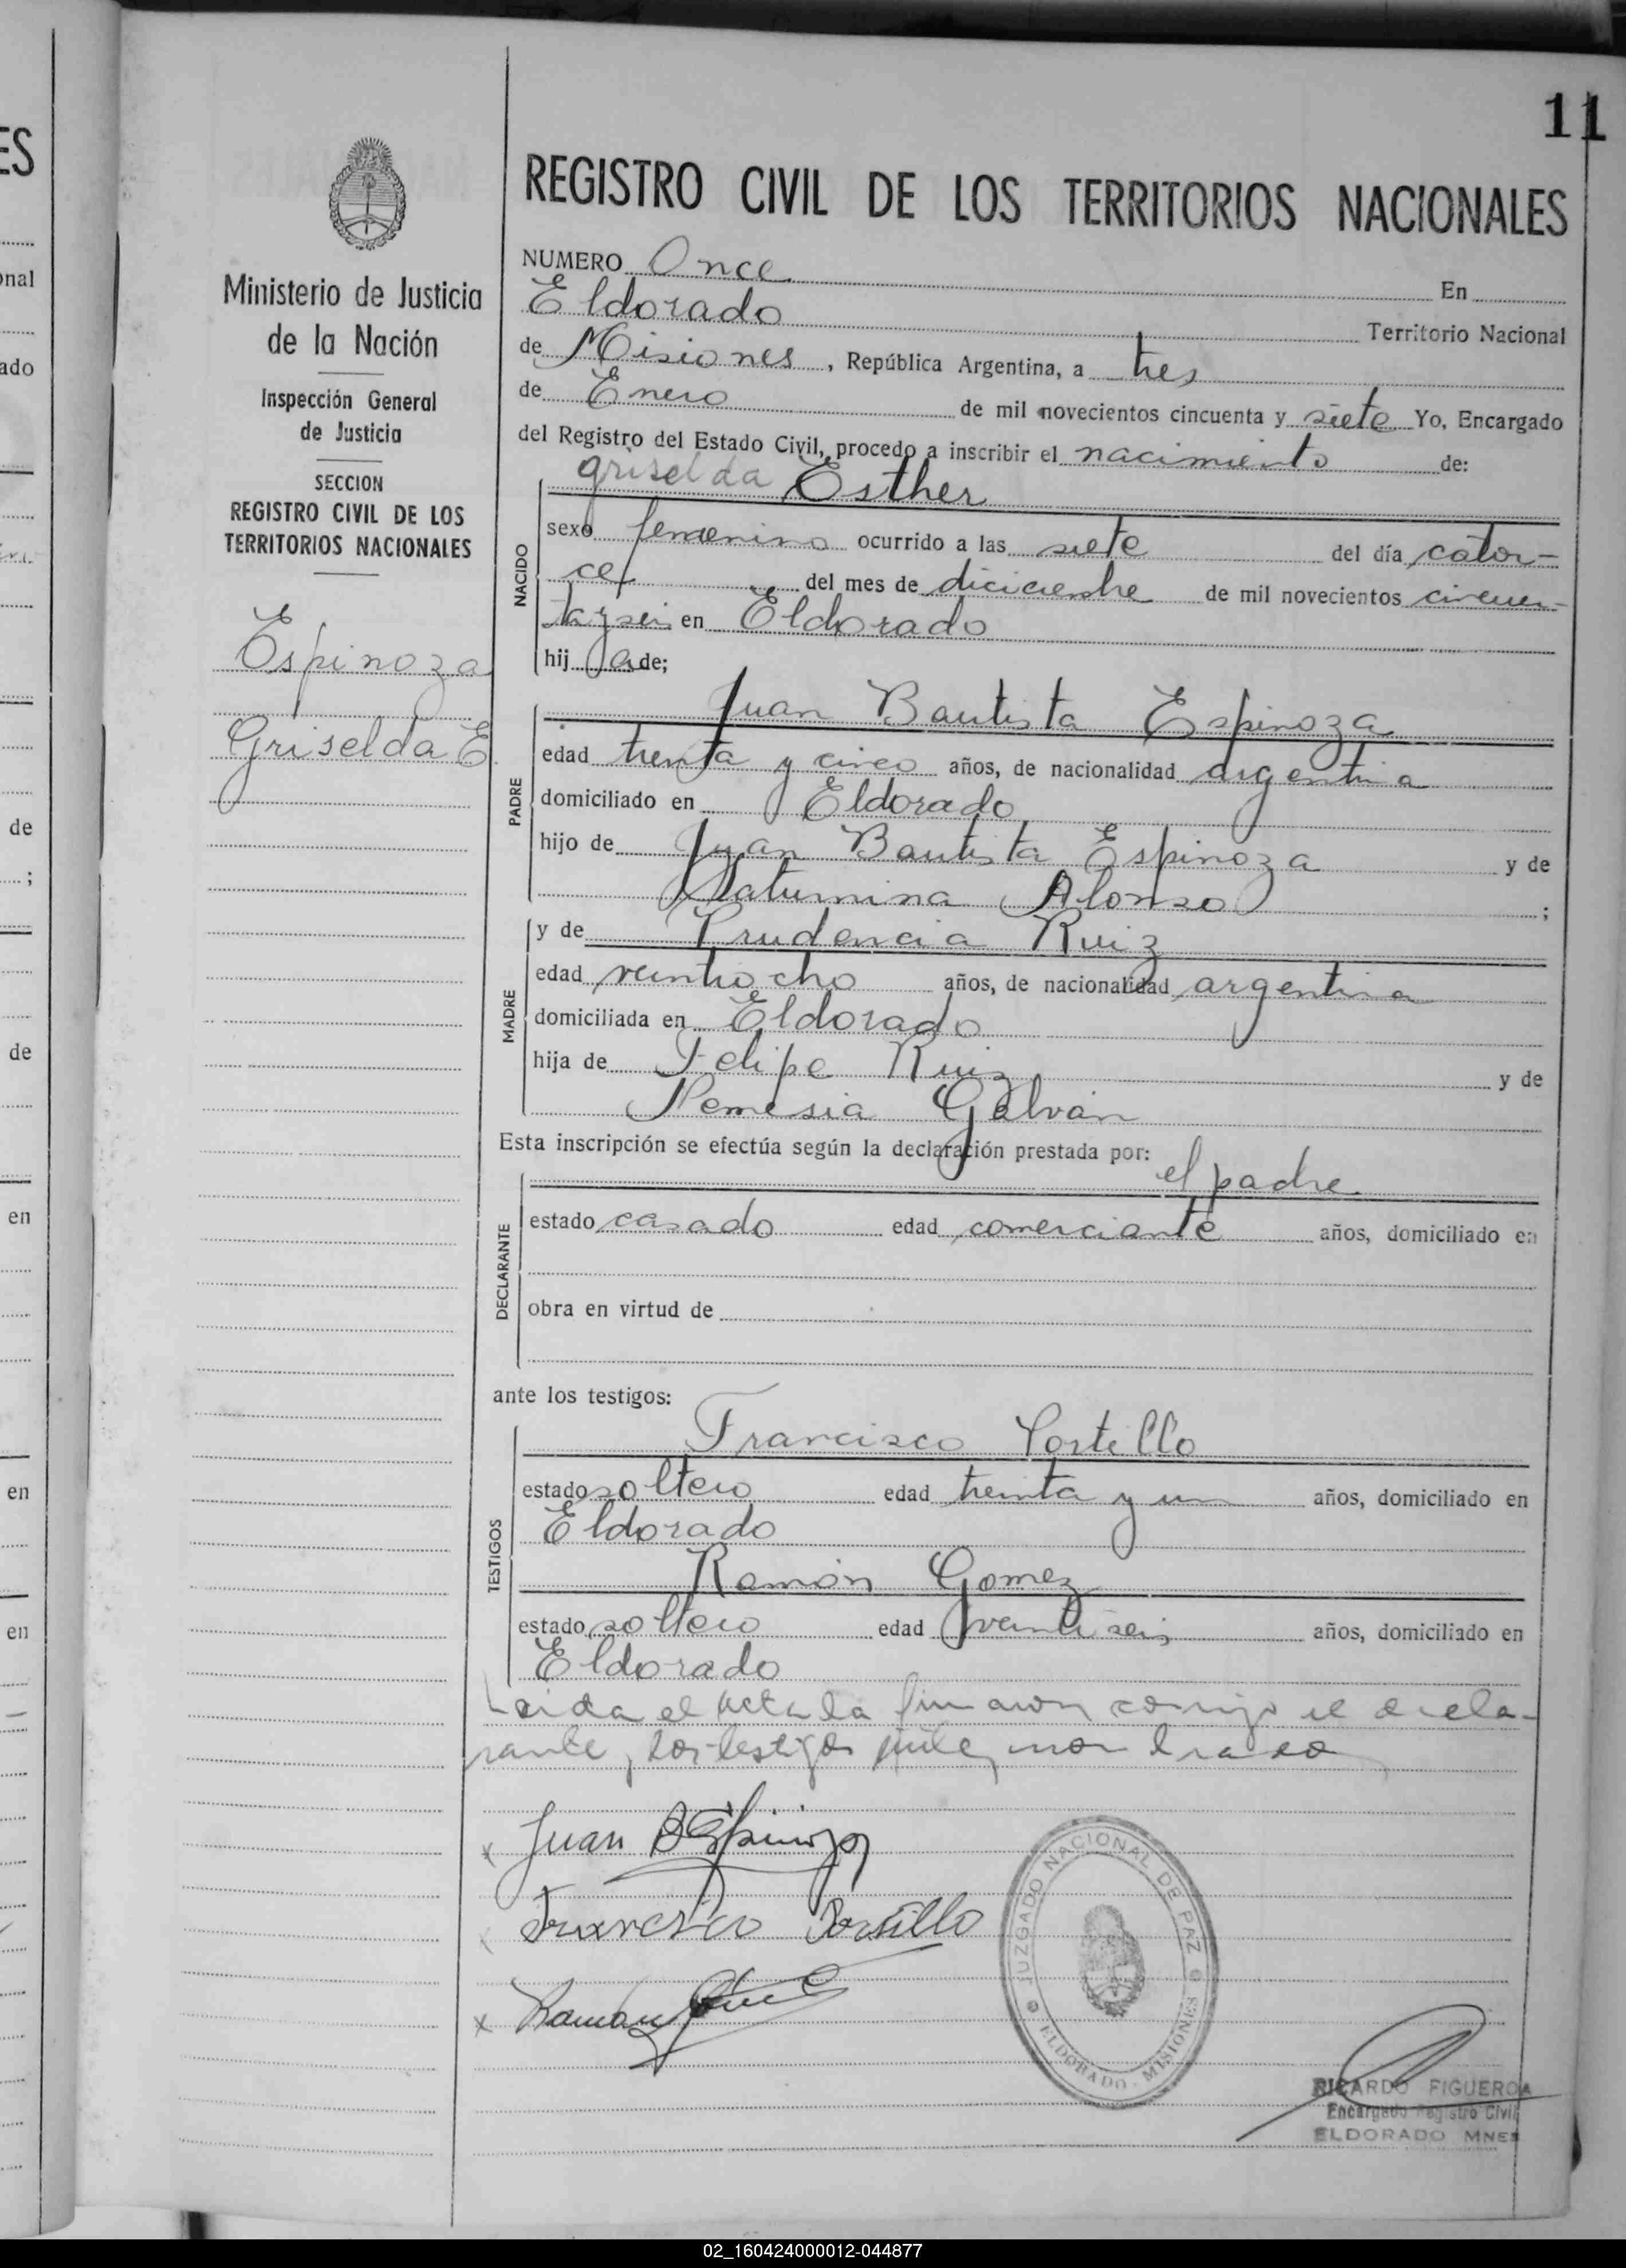 11
REGISTRO CIVIL DE LOS TERRITORIOS NACIONALES
Ministerio de Justicia
de la Nación
Inspección General
de Justicia
SECCION
REGISTRO CIVIL DE LOS
TERRITORIOS NACIONALES
Espinoza
Griselda E.
NUMERO Once En
Eldorado Territorio Nacional
de Misiones, República Argentina, a tres
de Enero de mil novecientos cincuenta y siete Yo, Encargado
del Registro del Estado Civil, procedo a inscribir el nacimiento de:
griselda Esther
NACIDO
sexo femenino ocurrido a las siete del día cator-
ce del mes de diciciembre de mil novecientos cincuen-
ta y seis en Eldorado
hij a de;
PADRE
Juan Bautista Espinoza
edad treinta y cinco años, de nacionalidad argentina
domiciliado en Eldorado
hijo de Juan Bautista Espinoza y de
Saturnina Alonso ;
MADRE
y de Prudencia Ruiz
edad veintiocho años, de nacionalidad argentina
domiciliada en Eldorado
hija de Felipe Ruiz y de
Nemesia Galván
Esta inscripción se efectúa según la declaración prestada por:
el padre
DECLARANTE
estado casado edad comerciante años, domiciliado en
obra en virtud de
ante los testigos:
TESTIGOS
Francisco Portillo
estado soltero edad treinta y un años, domiciliado en
Eldorado
Ramón Gomez
estado soltero edad veintiseis años, domiciliado en
Eldorado
Leida el acta la firmaron conmigo el decla-
rante, los testigos
Juan B Espinoza
Francisco Portillo
Ramón
JUZGADO NACIONAL DE PAZ
ELDORADO - MISIONES
RICARDO FIGUEROA
Encargado Registro Civil
ELDORADO MNES
ES
onal
ado
de
;
de
en
en
en
02_160424000012-044877